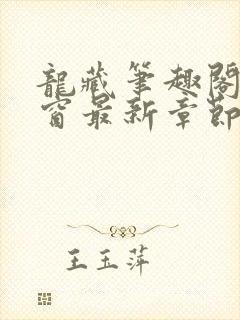 龍藏筆趣閣
窗最新章節
王玉萍